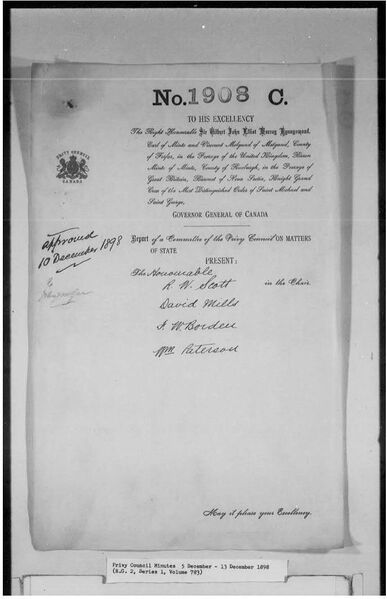 No. 1908 C.
TO HIS EXCELLENCY
The Right Honourable Sir Gilbert John Elliot Murray Kynynmond,
Earl of Minto and Viscount Melgund of Melgund, County
of Forfar, in the Peerage of the United Kingdom, Baron
Minto of Minto, County of Roxburgh, in the Peerage of
Great Britain, Baronet of Nova Scotia, Knight Grand
Cross of the Most Distinguished Order of Saint Michael and
Saint George,
GOVERNOR GENERAL OF CANADA
PRIVY COUNCIL
CANADA
approved
10 December 1898
Report of a Committee of the Privy Council ON MATTERS
OF STATE
PRESENT:
The Honourable
R. W. Scott in the Chair.
David Mills
F. W. Borden
Wm Paterson
May it please your Excellency.
Privy Council Minutes 5 December - 13 December 1898
(R.G. 2, Series 1, Volume 783)